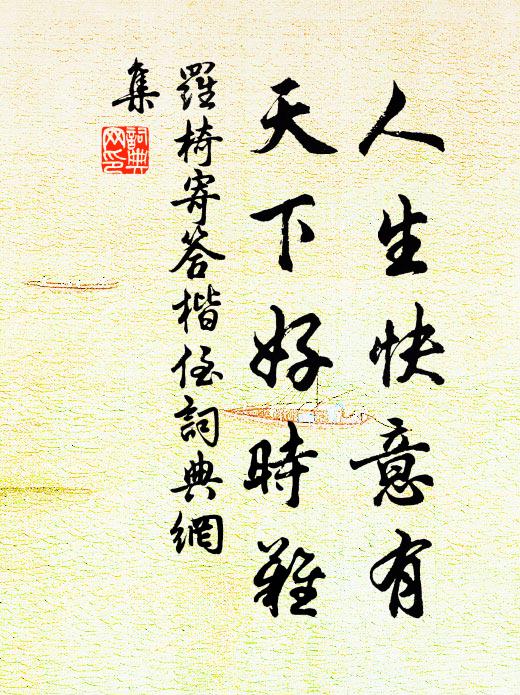 人生快意有
天下好時難
羅椅寄答楷侄詞典網
集
詞典
网印